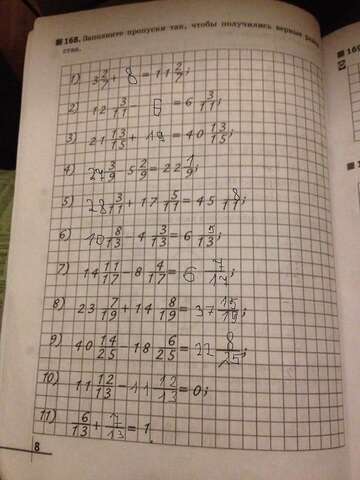 168. Заполните пропуски так, чтобы получились верные
ства.
1) 3 2/7 + 8 = 11 2/7;
2) 12 3/11 - 6 = 6 3/11;
3) 21 13/15 + 19 = 40 13/15;
4) 27 3/9 - 5 2/9 = 22 1/9;
5) 28 3/11 + 17 5/11 = 45 8/11;
6) 10 8/13 - 4 3/13 = 6 5/13;
7) 14 11/17 - 8 4/17 = 6 7/17;
8) 23 7/19 + 14 8/19 = 37 15/19;
9) 40 14/25 - 18 6/25 = 22 8/25;
10) 11 12/13 - 11 12/13 = 0;
11) 6/13 + 7/13 = 1
8
169